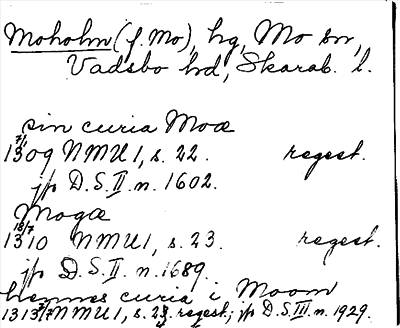 Moholm (f. Mo), hg, Mo sn,
Vadsbo hd, Skarab. l.
sin curia Moæ
7/1
1309 NMU 1, s. 22. regest.
jfr D.S. II. n. 1602.
Mogæ
18/7
1310 NMU 1, s. 23. regest.
jfr D.S. II. n. 1689.
hennes curia i Moom
1313 NMU 1, s. regest; jfr D.S. III. n. 1929.